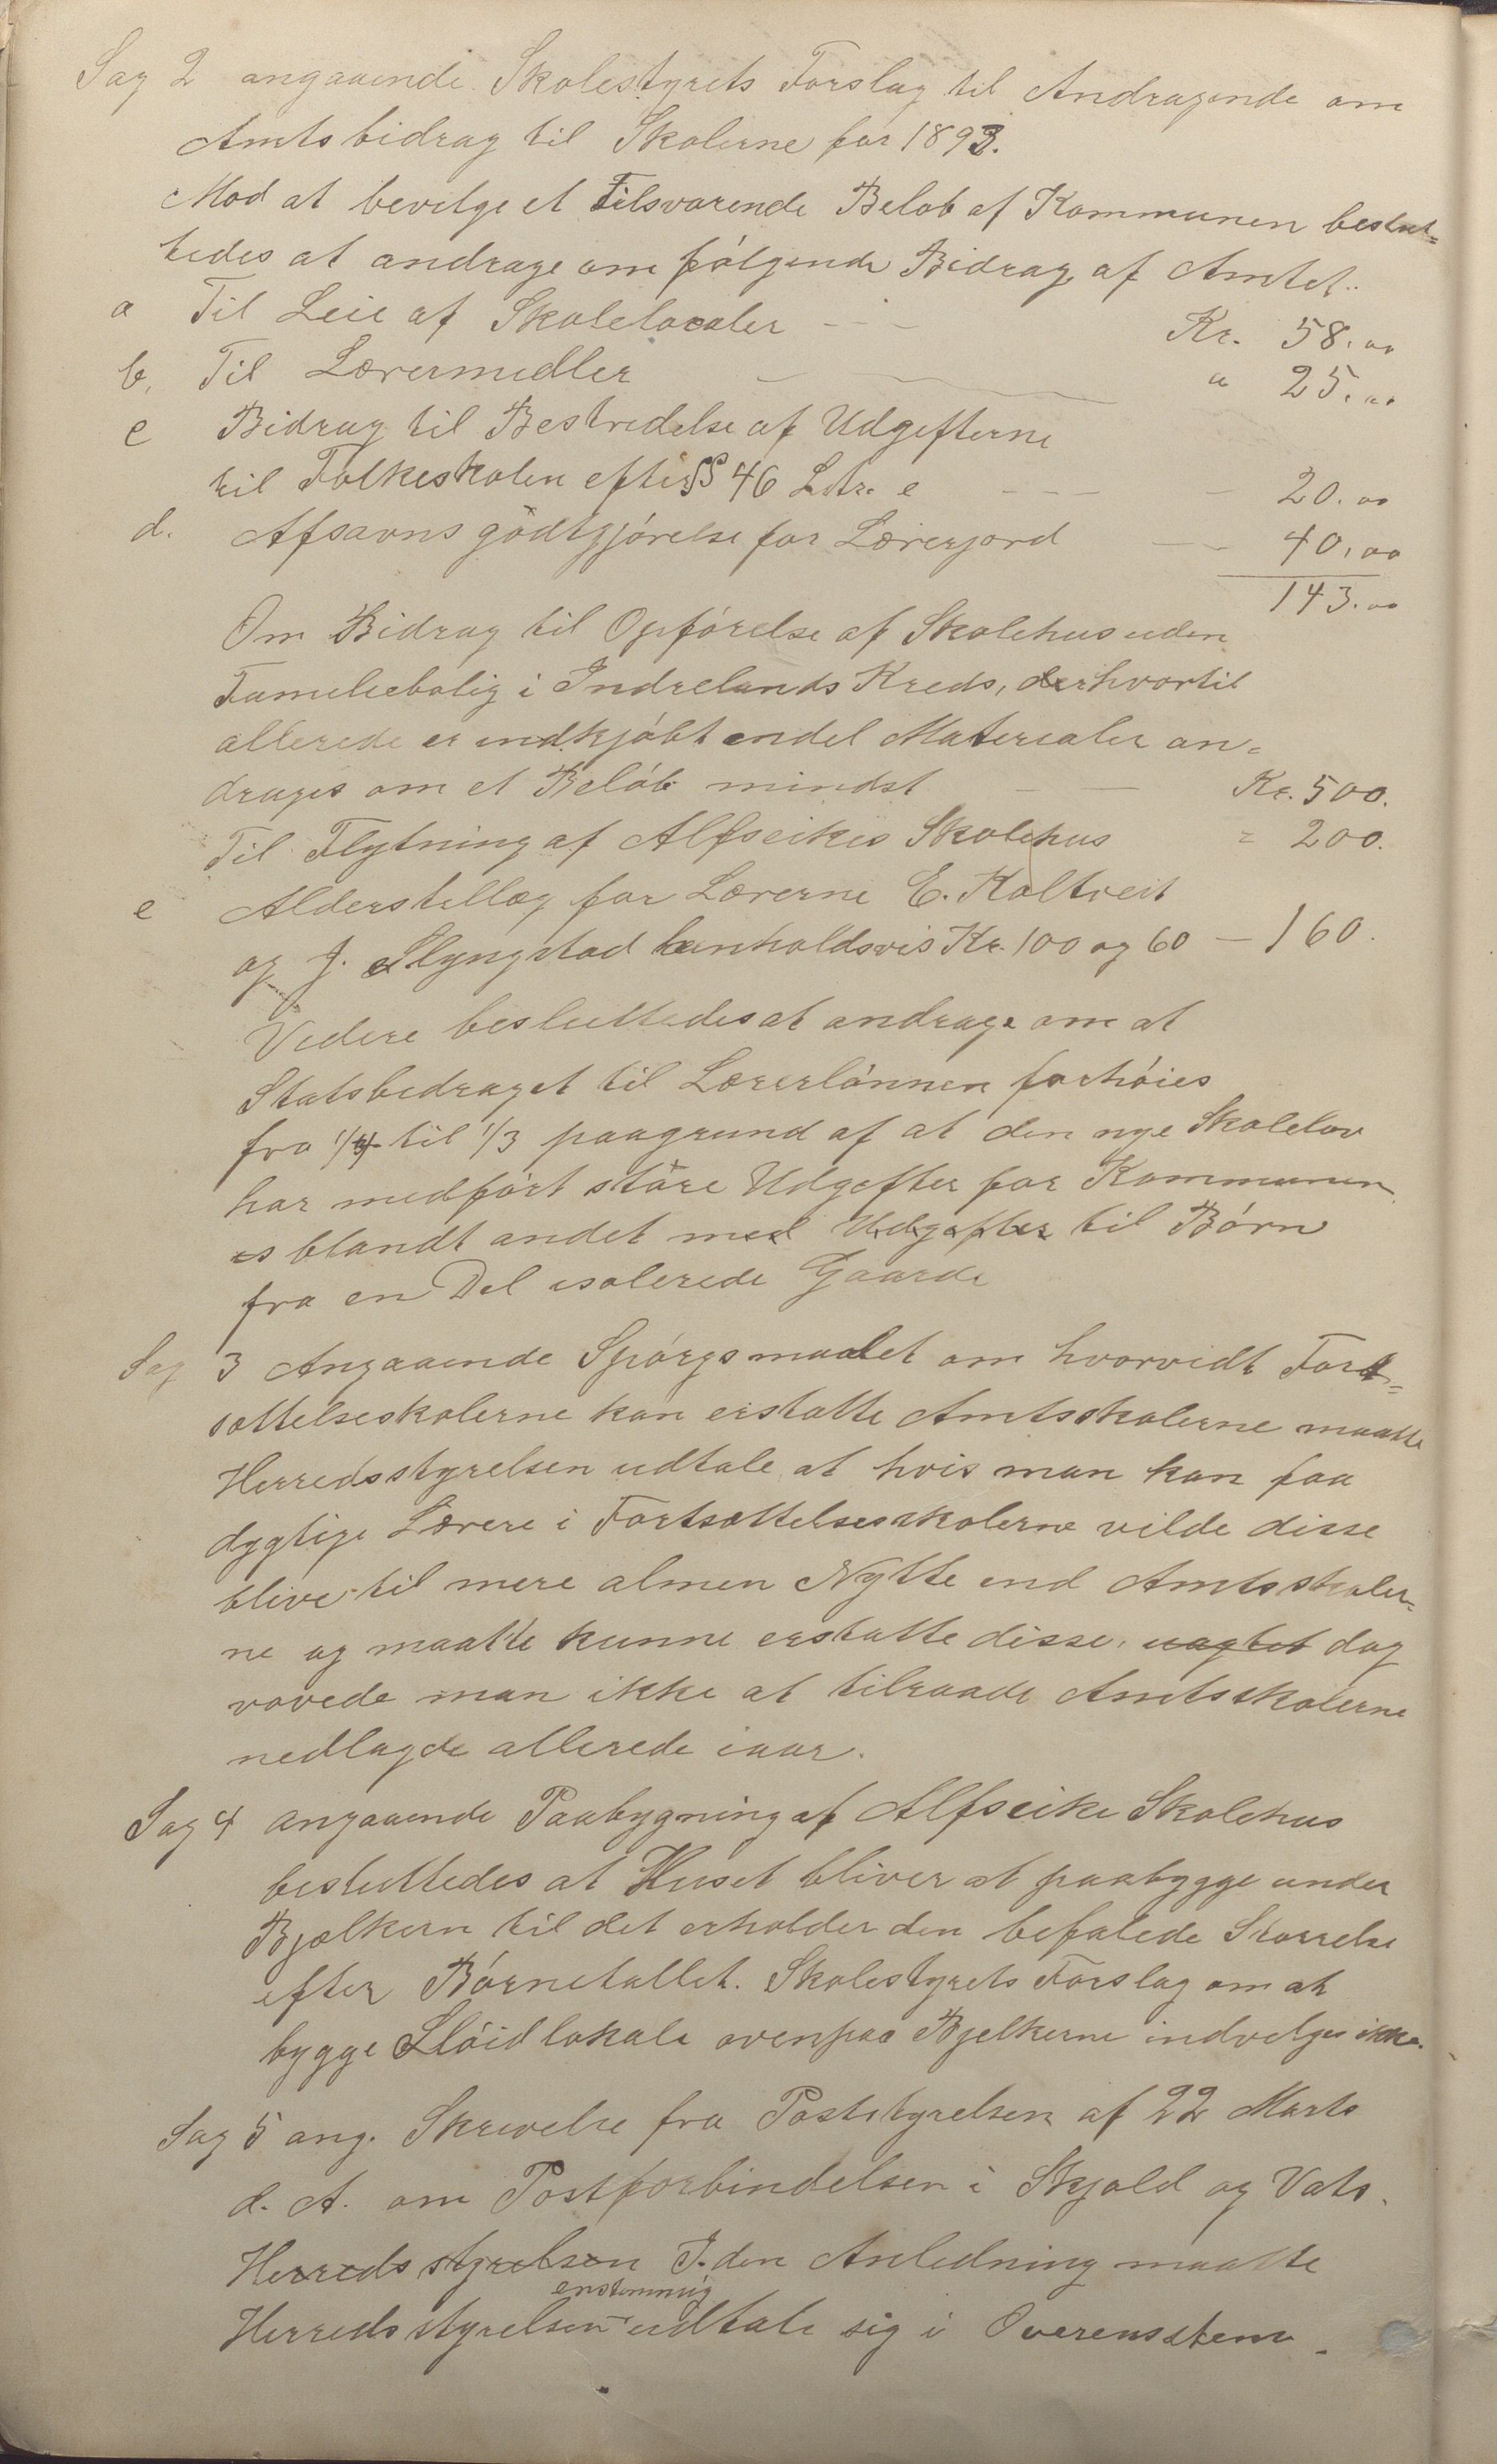 Sag 2 angaaende Skolestyrets Forslag til Andragende om
Amtsbidrag til Skolerne for 1893.
Mod at bevilge et Tilsvarende Beløb af Kommunen beslut=
tedes at andrage om følgende Bidrag af Amtet.
a Til Leie af Skolelocaler - - - Kr. 58.00
b, Til Lærermidler " 25.00
c Bidrag til Bestridelse af Udgifterne
til Folkeskolen efter §§ 46 Litr. e - - - - 20.00
d. Afsavnsgödtgjørelse for Lærerjord - 40,00
143.00
Om Bidrag til Opførelse af Skolehus uden
Familiebolig i Indrelands Kreds, hvortil
allerede er indkjøbt endel Materialer an=
drages om et Beløb mindst - - Kr. 500.
Til Flytning af Alfseikes Skolehus = 200.
e Alderstillæg for Lærerne E. Koltveit
og J. Slyngstad henholdsvis Kr. 100 og 60 - 160.
Videre besluttedes at andrage om at
Statsbidraget til Lærerlønnen forhøies
fra 1/4 til 1/3 paagrund af at den nye Skolelov
har medført støre Udgifter for Kommunen
blandt andet med Udgifter til Børn
fra en Del isolerede Gaarde
Sag 3 Angaaende Spørgsmaalet om hvorvidt Fort=
sættelseskolerne kan erstatte Amtsskolerne maatte
Herredsstyrelsen udtale at hvis man kan faa
dygtige Lærere i Fortsættelsesskolerne vilde disse
blive til mere almen Nytte end Amtsskoler=
ne og maatte kunne erstatte disse, uagtet dog
vovede man ikke at tilraade Amtsskolerne
nedlagde allerede iaar.
Sag 4 angaaende Paabygning af Alfseike Skolehus
besluttedes at Huset bliver at paabygge under
Bjælkern til det erholder den befalede Størrelse
efter Børnetallet. Skolestyrets Forslag om at
bygge Sløidlokale ovenpaa Bjelkerne indvelges ikke.
Sag 5 ang. Skrivelse fra Poststyrelsen af 22 Marts
d. A. om Postforbindelsen i Skjold og Vats.
Herredsstyrelsen I den Anledning maatte
enstemmig
Herredsstyrelsen udtale sig i Overensstem